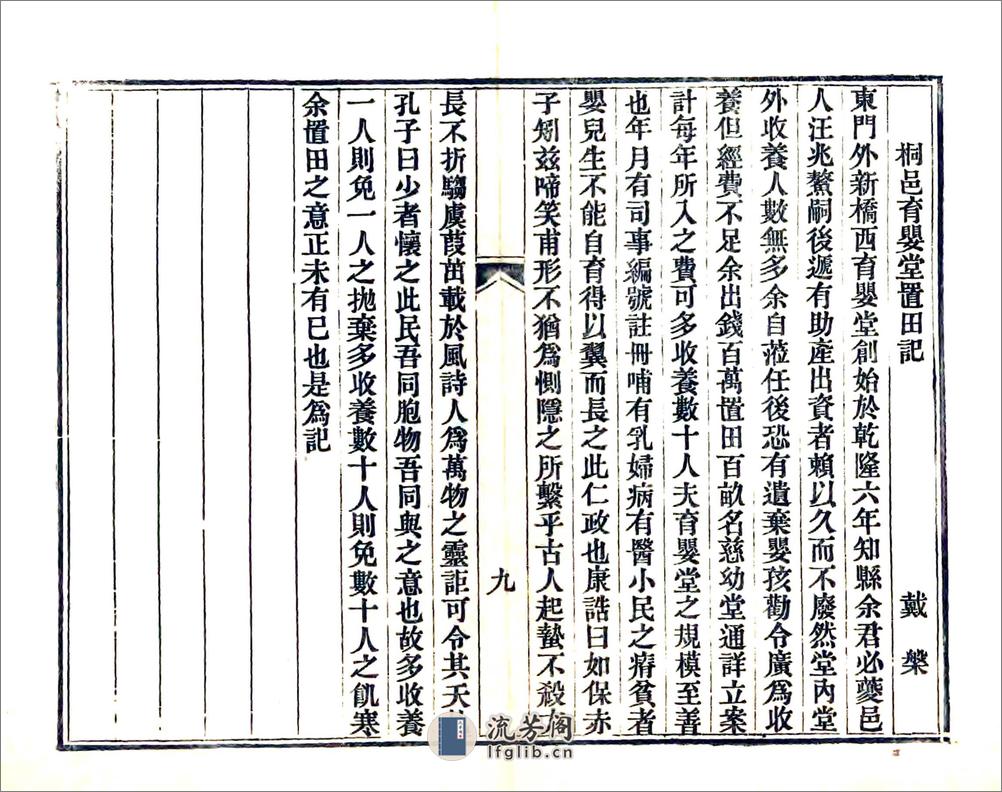 桐邑育嬰堂置田記 戴槃
東門外新橋西育嬰堂創始於乾隆六年知縣余君必夔邑
人汪兆鰲嗣後遞有助產出資者賴以久而不廢然堂內堂
外收養人數無多余自蒞任後恐有遺棄嬰孩勸令廣為收
養但經費不足余出錢百萬置田百畝名慈幼堂通詳立案
計每年所入之費可多收養數十人夫育嬰堂之規模至善
也年月有司事編號註冊哺有乳婦病有醫小民之瘠貧者
嬰兒生不能自育得以翼而長之此仁政也康誥曰如保赤
子矧茲啼笑甫形不猶為惻隱之所繫乎古人起蟄不殺方
九
長不折騶虞葭茁載於風詩人為萬物之靈詎可令其天
孔子曰少者懷之此民吾同胞物吾同與之意也故多收養
一人則免一人之拋棄多收養數十人則免數十人之飢寒
余置田之意正未有已也是為記
流芳閣
lfglib.cn